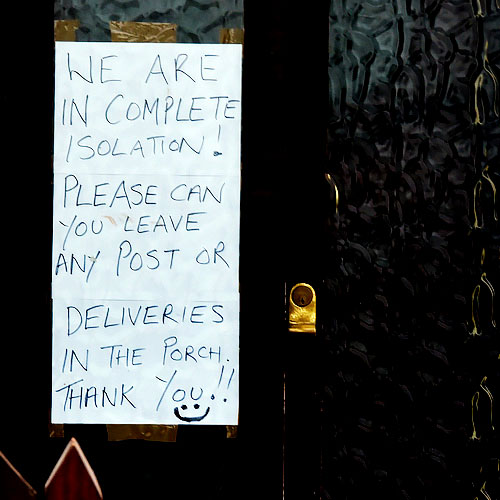 WE ARE
IN COMPLETE
ISOLATION!
PLEASE CAN
YOU LEAVE
ANY POST OR
DELIVERIES
IN THE PORCH.
THANK YOU!!